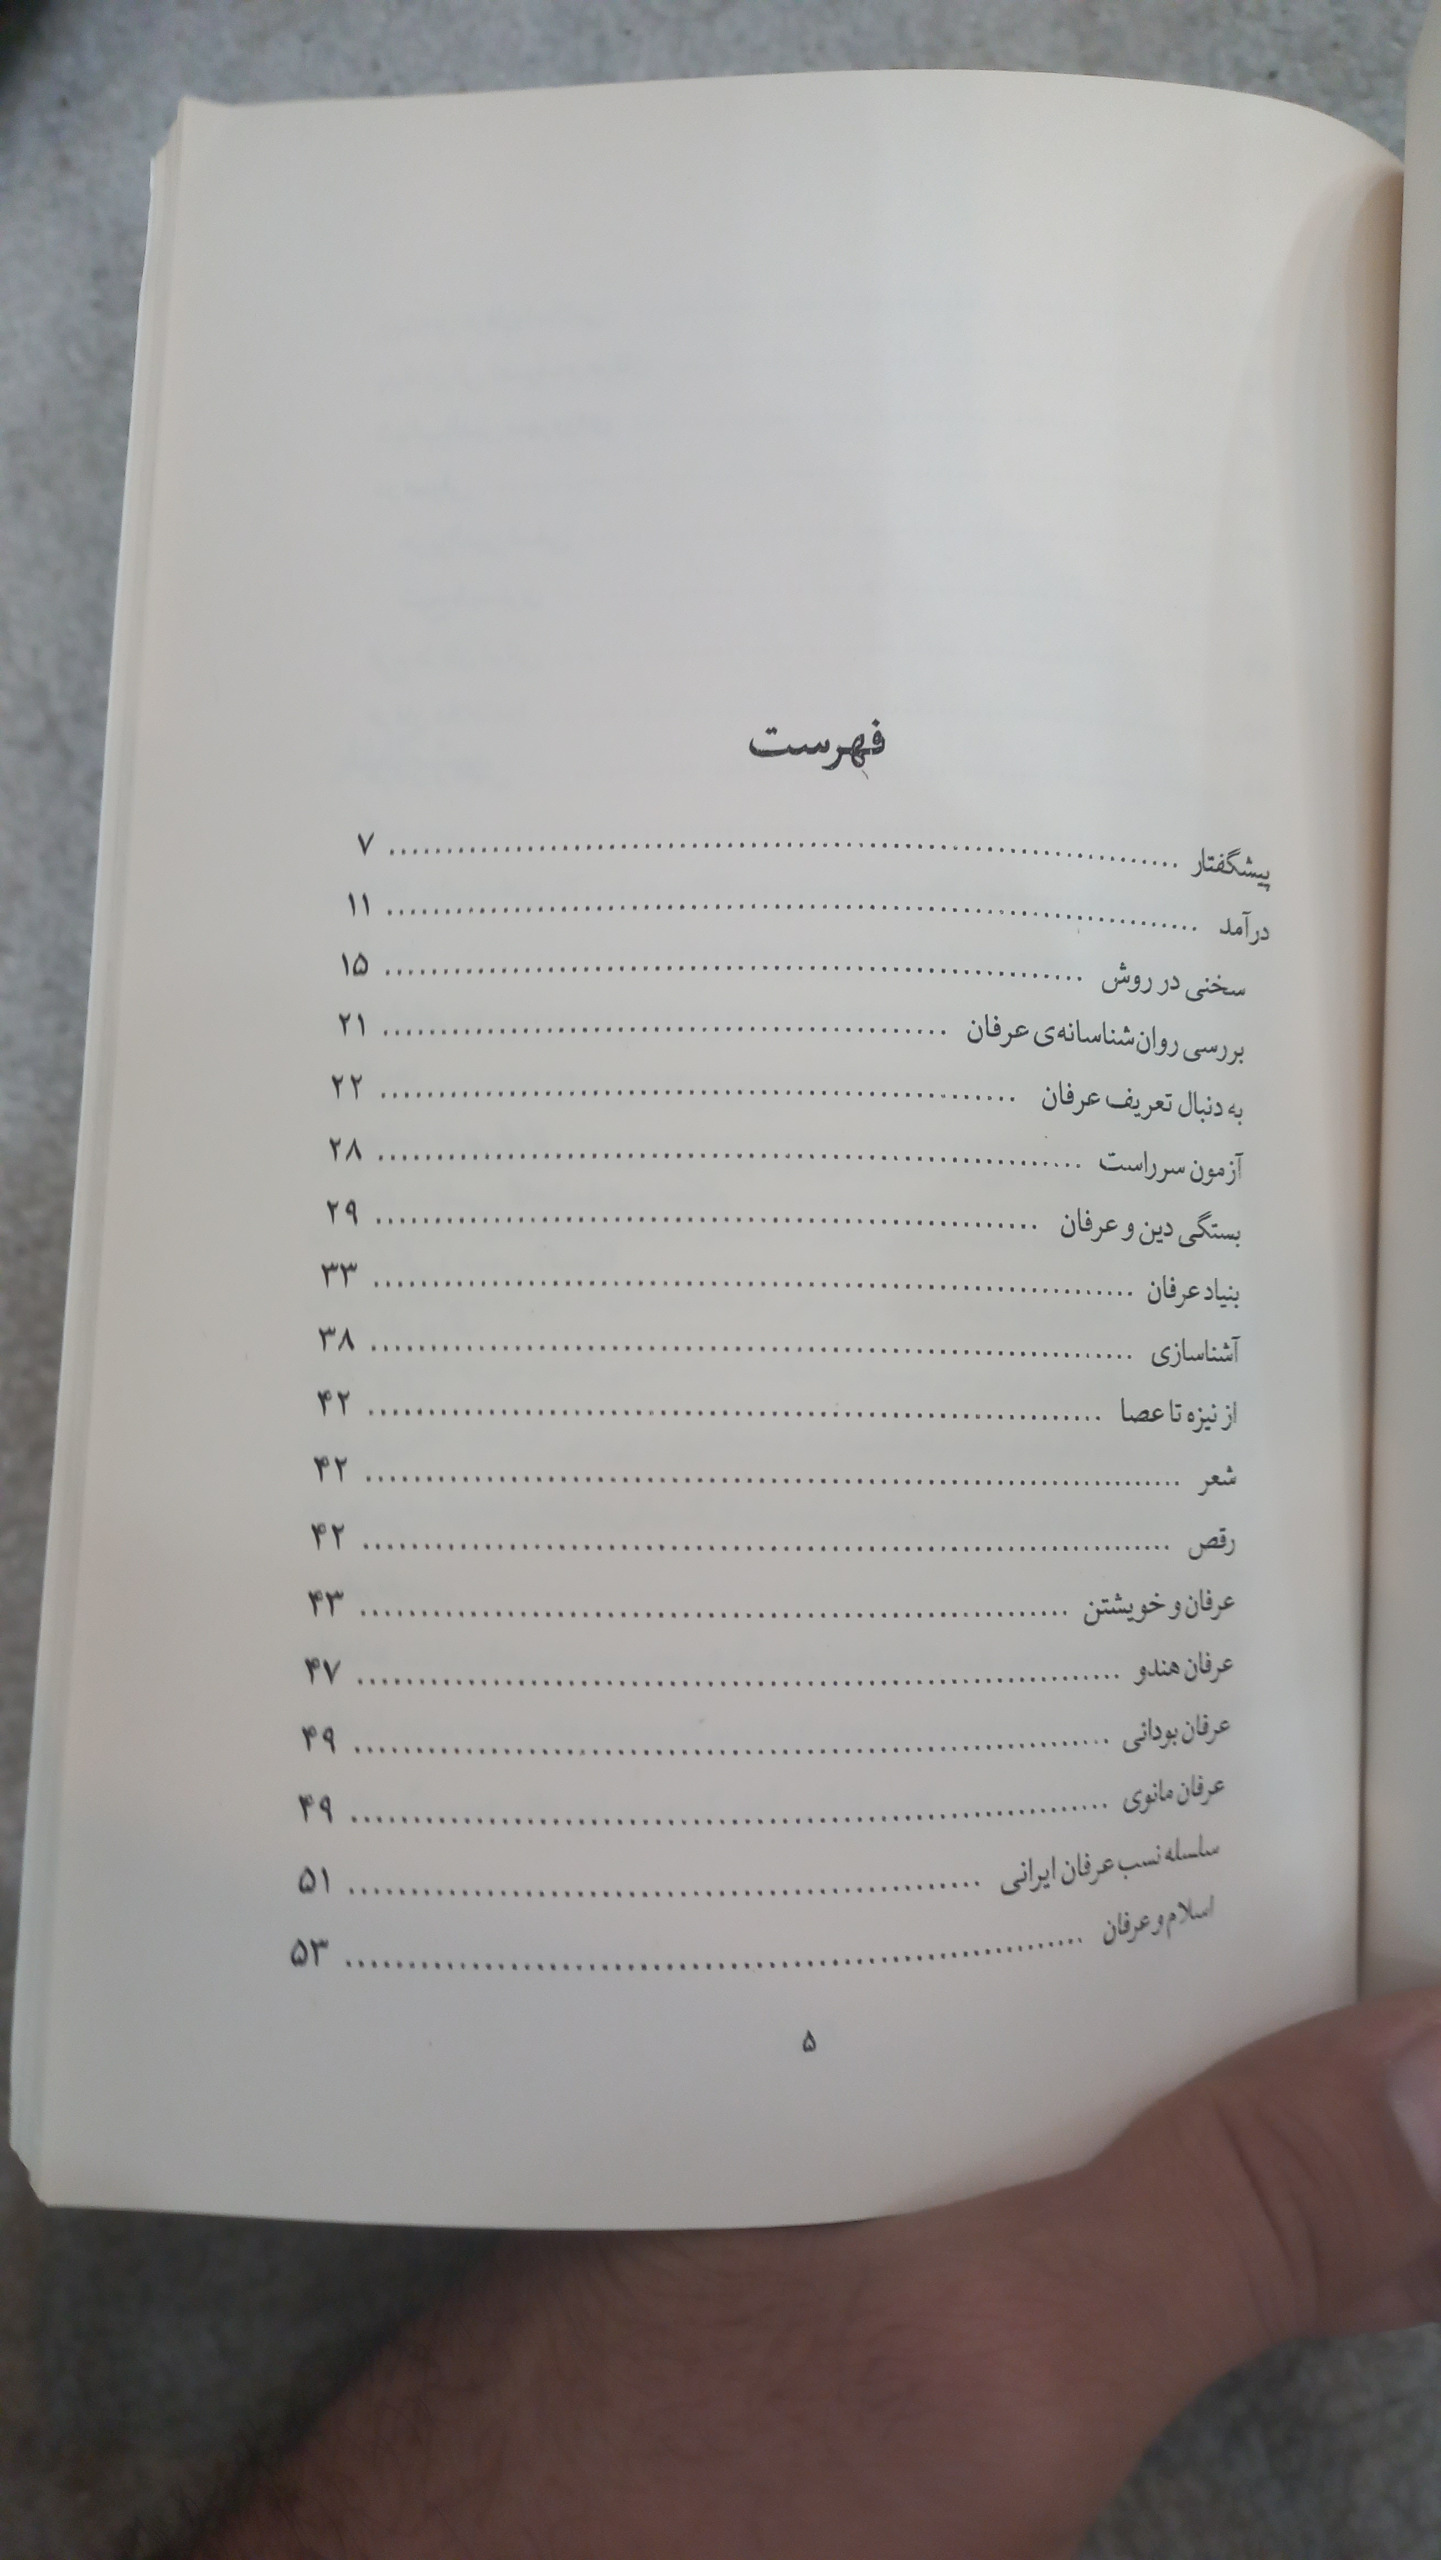 فهرست
پیشگفتار ........ ۷
درآمد ........ ۱۱
سخنی در روش ........ ۱۵
بررسی روان‌شناسانه‌ی عرفان ........ ۲۱
به دنبال تعریف عرفان ........ ۲۲
آزمون سرراست ........ ۲۸
بستگی دین و عرفان ........ ۲۹
بنیاد عرفان ........ ۳۳
آشناسازی ........ ۳۸
از نیزه تا عصا ........ ۴۲
شعر ........ ۴۲
رقص ........ ۴۲
عرفان و خویشتن ........ ۴۳
عرفان هندو ........ ۴۷
عرفان بودائی ........ ۴۹
عرفان مانوی ........ ۴۹
سلسله نسب عرفان ایرانی ........ ۵۱
اسلام و عرفان ........ ۵۳
۵